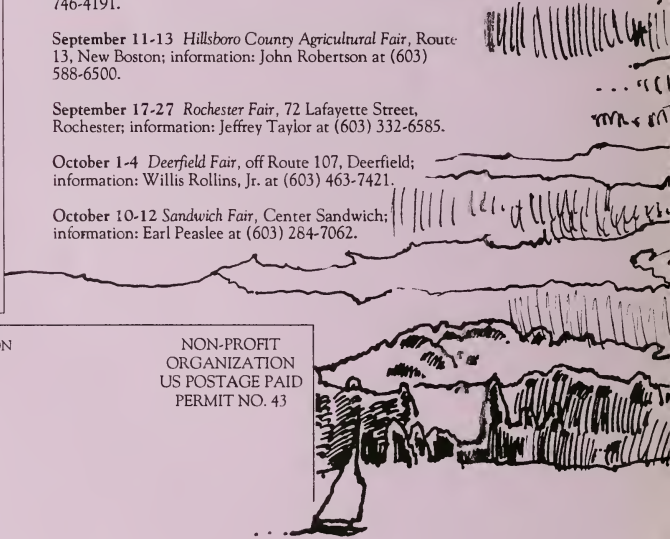 746-4191.
September 11-13 Hillsboro County Agricultural Fair, Route
13, New Boston; information: John Robertson at (603)
588-6500.
September 17-27 Rochester Fair, 72 Lafayette Street,
Rochester; information: Jeffrey Taylor at (603) 332-6585.
October 1-4 Deerfield Fair, off Route 107, Deerfield;
information: Willis Rollins, Jr. at (603) 463-7421.
October 10-12 Sandwich Fair, Center Sandwich;
information: Earl Peaslee at (603) 284-7062.
N
NON-PROFIT
ORGANIZATION
US POSTAGE PAID
PERMIT NO. 43